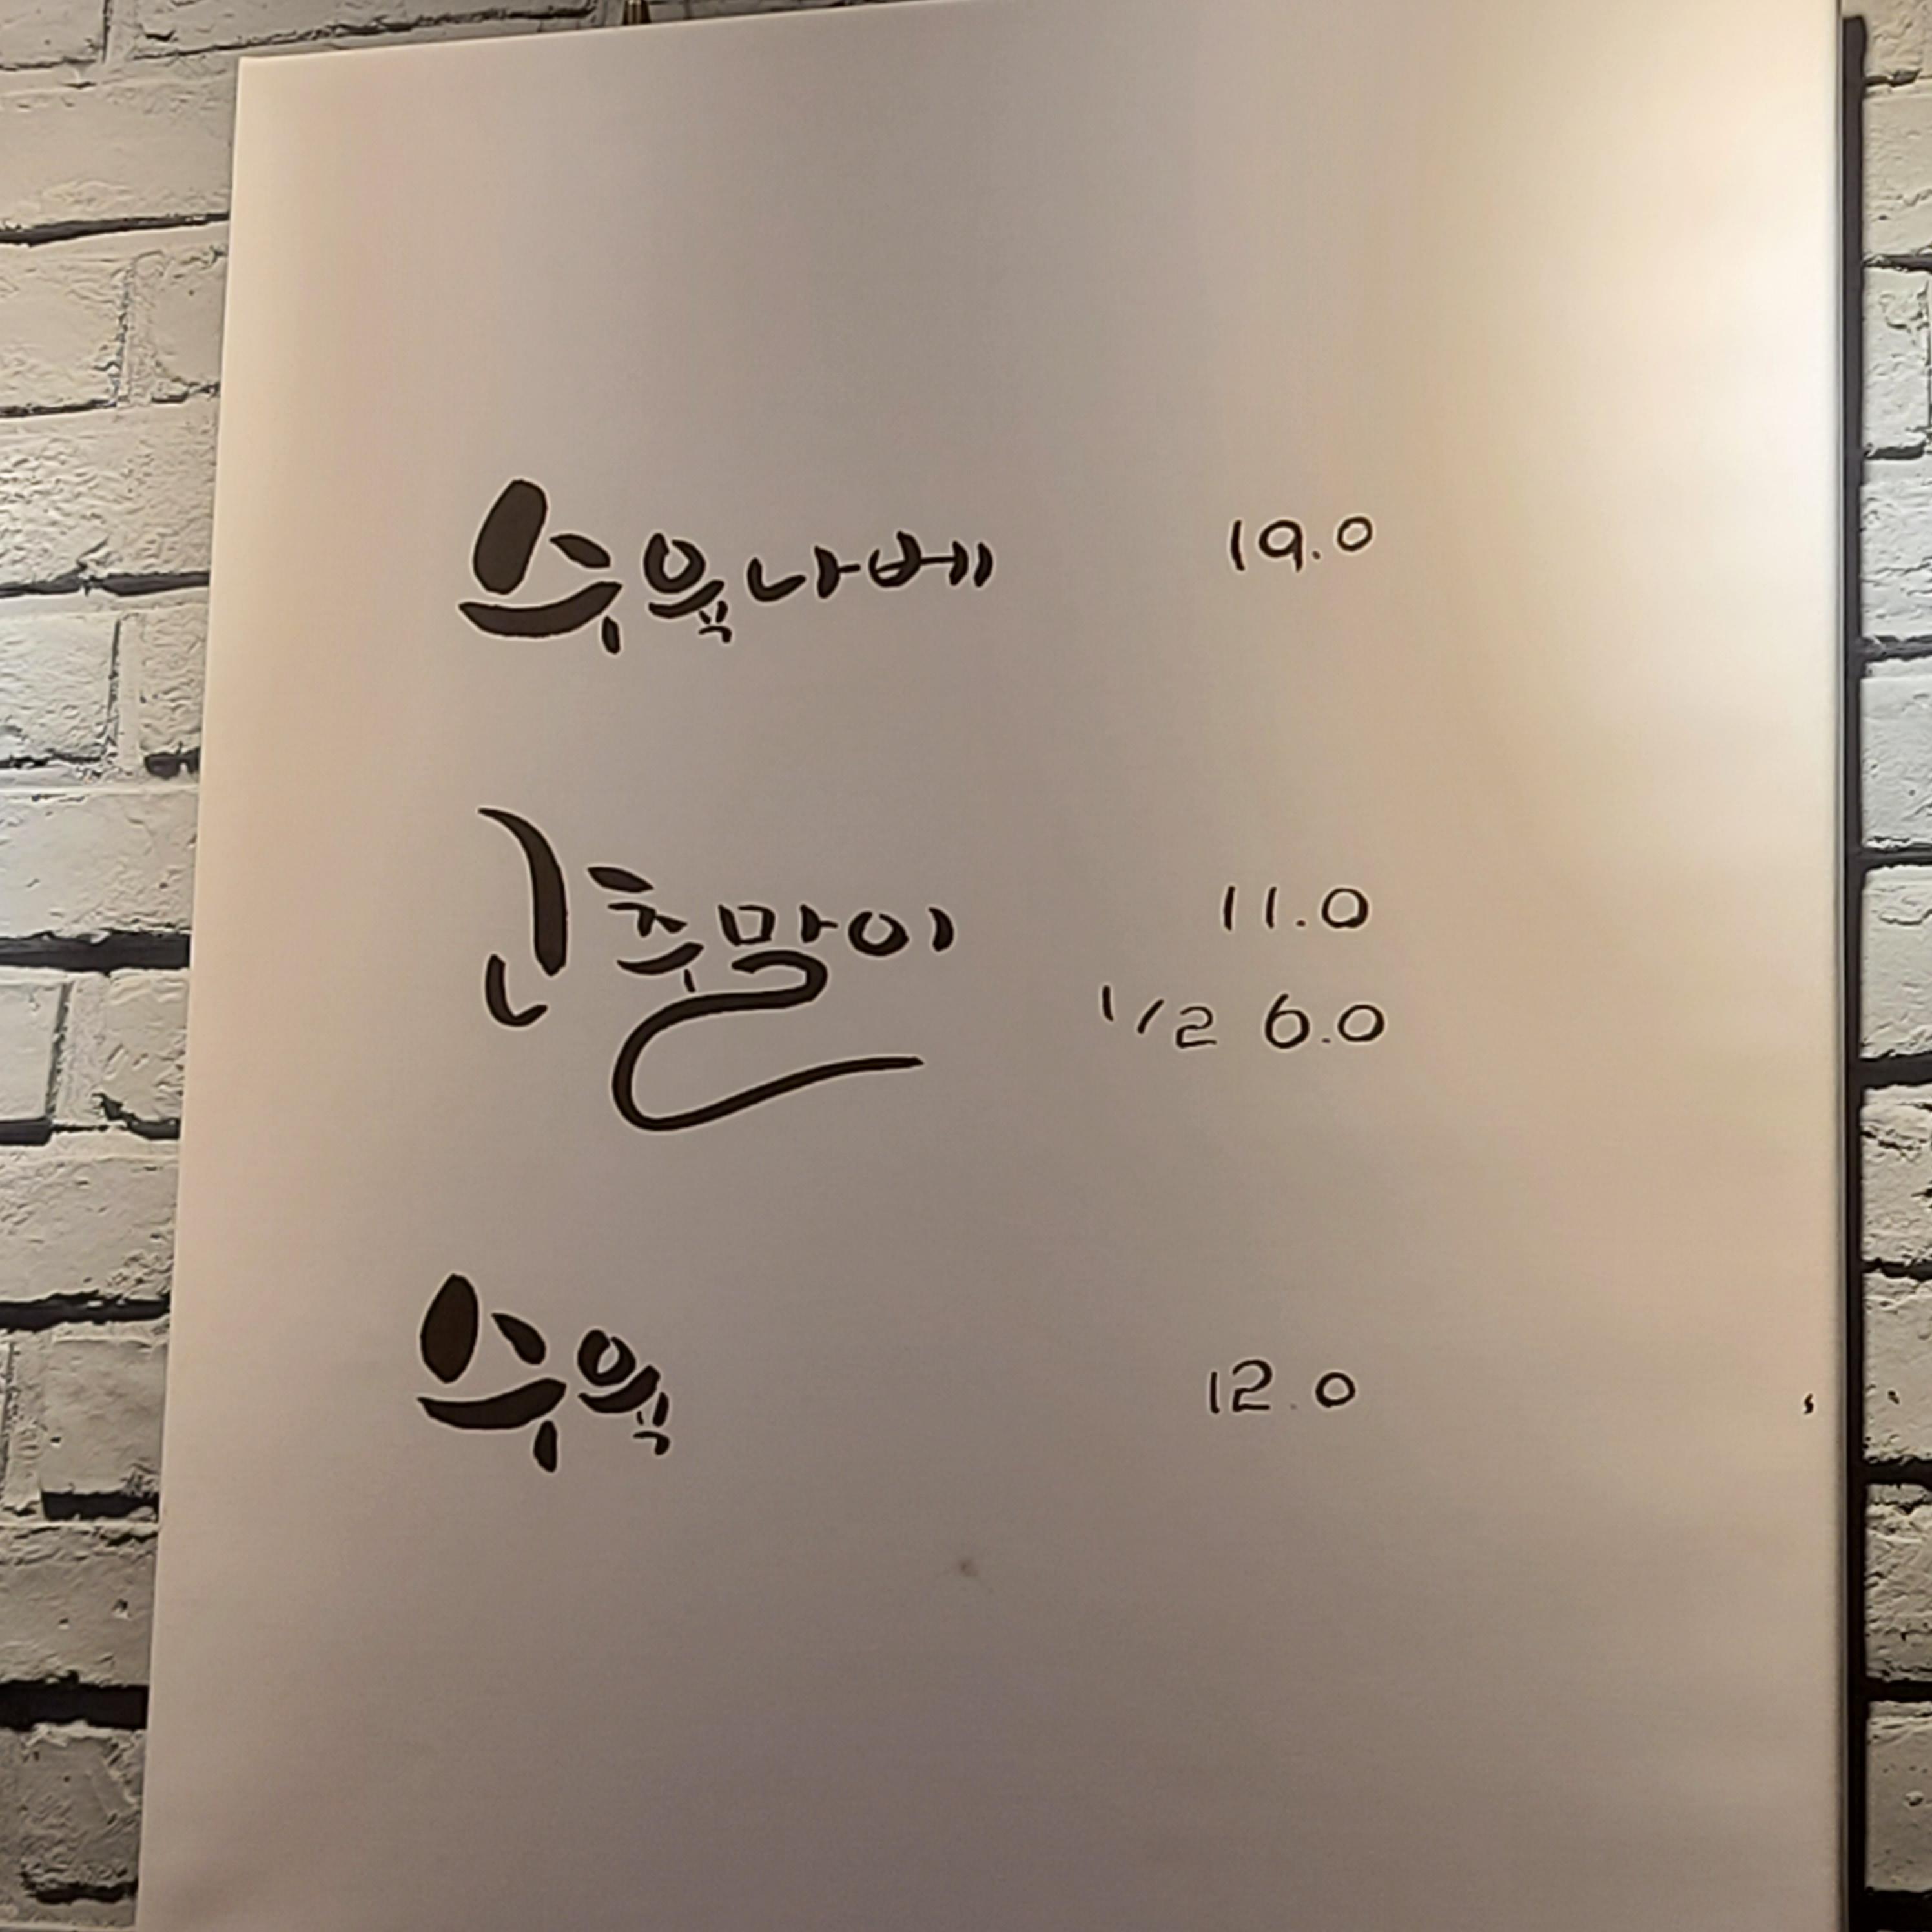 수육나베 19.0
고추말이 11.0
1/2 6.0
수육 12.0